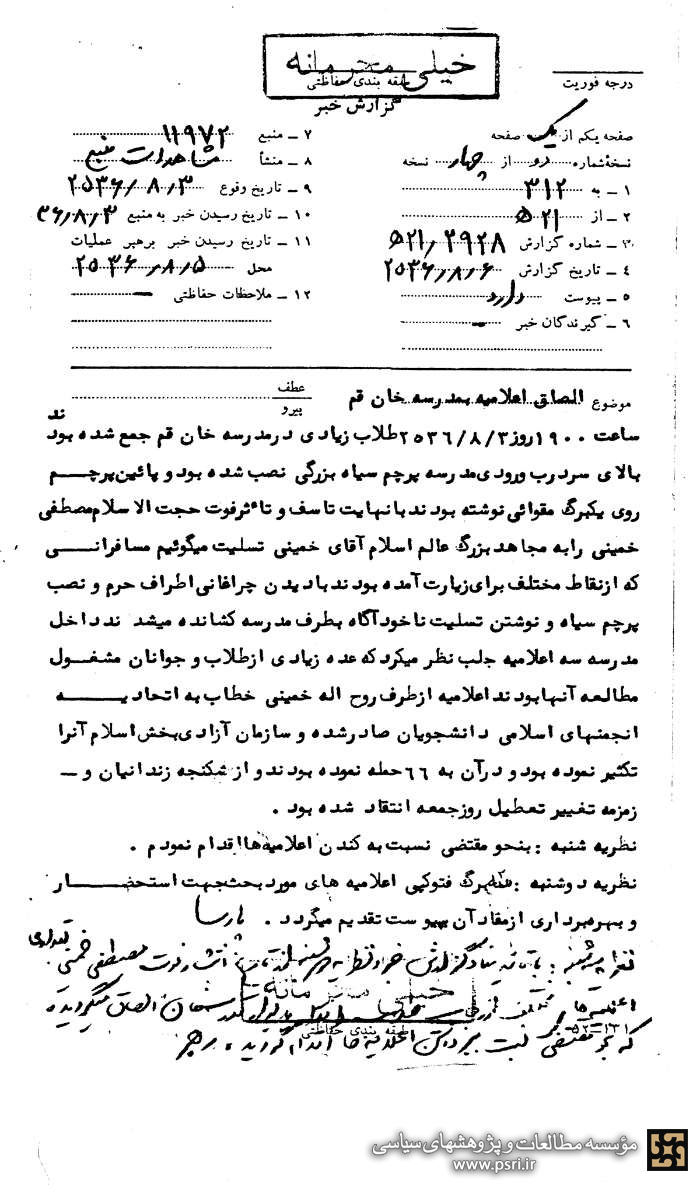 خیلی محرمانه
طبقه بندی حفاظتی
درجه فوریت
گزارش خبر
صفحه یکم از یک صفحه
نسخه شماره دو از چهار نسخه
۱ – به ۳۱۲
۲ – از ۵۲۱
۳ – شماره گزارش ۵۲۱٫۲۹۲۸
۴ – تاریخ گزارش ۲۵۳۶٫۸٫۶
۵ – پیوست دارد
۶ – گیرندگان خبر –
۷ – منبع ۱۱۹۷۲
۸ – منشأ مشاهدات منبع
۹ – تاریخ وقوع ۲۵۳۶٫۸٫۳
۱۰ – تاریخ رسیدن خبر به منبع ۳۶٫۸٫۳
۱۱ – تاریخ رسیدن خبر برهبر عملیات
محل ۲۵۳۶٫۸٫۵
۱۲ – ملاحظات حفاظتی –
موضوع الصاق اعلامیه بمدرسه خان قم
عطف
پیرو
ساعت ۱۹۰۰ روز ۲۵۳۶/۸/۳ طلاب زیادی در مدرسه خان قم جمع شده بودند
بالای سردرب ورودی مدرسه پرچم سیاه بزرگی نصب شده بود و پائین پرچم
روی یکبرگ مقوائی نوشته بودند با نهایت تاسف و تاثر فوت حجت الاسلام مصطفی
خمینی را به مجاهد بزرگ عالم اسلام آقای خمینی تسلیت میگوئیم مسافرانی
که از نقاط مختلف برای زیارت آمده بودند با دیدن چراغانی اطراف حرم و نصب
پرچم سیاه و نوشتن تسلیت ناخودآگاه بطرف مدرسه کشانده میشدند داخل
مدرسه سه اعلامیه جلب نظر میکرد که عده زیادی از طلاب و جوانان مشغول
مطالعه آنها بودند اعلامیه از طرف روح اله خمینی خطاب به اتحادیه
انجمنهای اسلامی دانشجویان صادر شده و سازمان آزادی بخش اسلام آنرا
تکثیر نموده بود و در آن به ۶۶ حمله نموده بودند و از شکنجه زندانیان و –
زمزمه تغییر تعطیل روز جمعه انتقاد شده بود .
نظریه شنبه : بنحو مقتضی نسبت به کندن اعلامیه ها اقدام نمودم .
نظریه دوشنبه : سه برگ فتوکپی اعلامیه های مورد بحث جهت استحضار
و بهره برداری از مفاد آن به پیوست تقدیم میگردد . پارسا
نظریه سه شنبه : با توجه بمفاد گزارش خبر و نظریه انتشار فوت مصطفی خمینی تعدادی
اعلامیه الصاق میگردیده
که بنحو مقتضی نسبت اعلامیه ها اقدام گردید .
خیلی محرمانه
طبقه بندی حفاظتی
۵۲–۱۲۱
مؤسسه مطالعات و پژوهشهای سیاسی
www.psri.ir